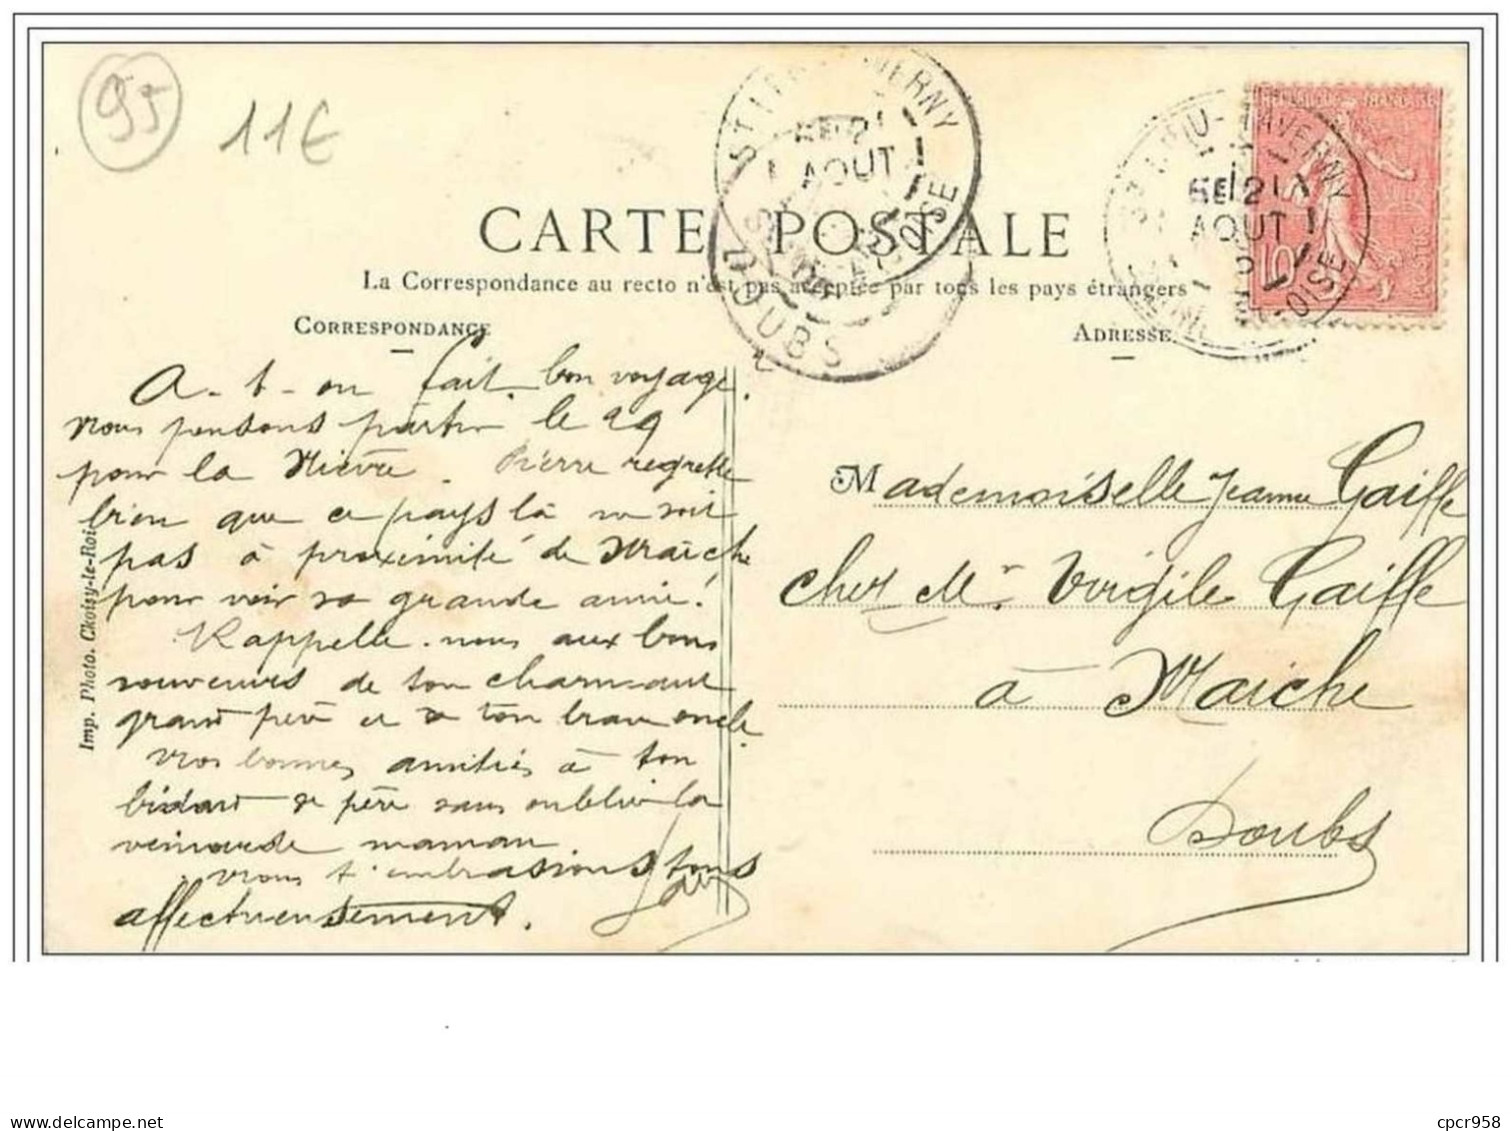 95
11€
ST LEU-TAVERNY
21
AOUT
OISE
DOUBS
ST LEU-TAVERNY
21
AOUT
OISE
10
CARTE POSTALE
La Correspondance au recto n'est pas acceptée par tous les pays étrangers
CORRESPONDANCE
ADRESSE
A-t-on fait bon voyage.
nous pensons partir le 29
pour la Nièvre. Pierre regrette
bien que ce pays là ne soit
pas à proximité de Maîche
pour voir sa grande amie!
Rappelle-nous aux bons
souvenirs de ton charmant
grand père et de ton brave oncle.
Nos bonnes amitiés à ton
père sans oublier la
maman
nous t'embrassons tous
affectueusement.
Mademoiselle Jeanne Gaiffe
chez Mr. Virgile Gaiffe
à Maiche
Doubs
Imp. Photo. Choisy-le-Roi
cpcr958